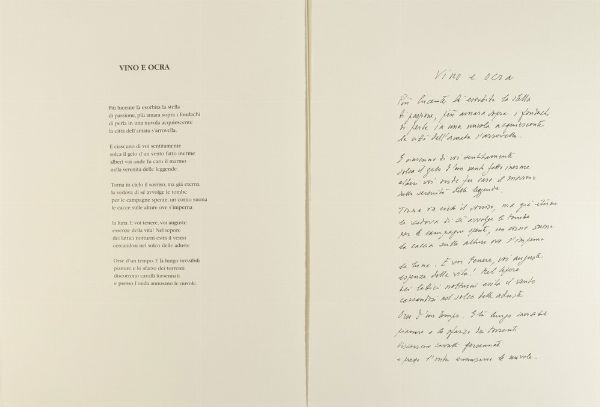 VINO E OCRA
Più lucente fà esorbita la stella
di passione, più amara sopra i fondachi
di perla in una nuvola acquiescente
la città dell'amata s'arrovella.
E ciascuno di voi sentitamente
solca il gelo d'un vento fatto inerme
alberi voi onde fu caro il
nella serenità delle leggende.
Torna in cielo il sorriso, ma già eterna
la vedova di sé avvolge le tombe
per le campagne spente, un corno suona
le cacce sulle alture ove s'imperna
la luna. E voi tenere, voi auguste
essenze della vita! Nel tepore
dei lattici notturni evita il vento
cercandosi nel solco delle aduste
Orse d'un tempo. E là lungo invisibili
pianure e lo sfarzo dei torrenti
discorrono cavalli forsennati
e presso l'onda annusano le nuvole.
Vino e ocra
Più lucente fà esorbita la stella
di passione, più amara sopra i fondachi
di perla in una nuvola acquiescente
la città dell'amata s'arrovella.
E ciascuno di voi sentitamente
solca il gelo d'un vento fatto inerme
alberi voi onde fu caro il
nella serenità delle leggende.
Torna in cielo il sorriso, ma già eterna
la vedova di sé avvolge le tombe
per le campagne spente, un corno suona
le cacce sulle alture ove s'imperna
la luna. E voi tenere, voi auguste
essenze della vita! Nel tepore
dei lattici notturni evita il vento
cercandosi nel solco delle aduste
Orse d'un tempo. E là lungo invisibili
pianure e lo sfarzo dei torrenti
discorrono cavalli forsennati
e presso l'onda annusano le nuvole.